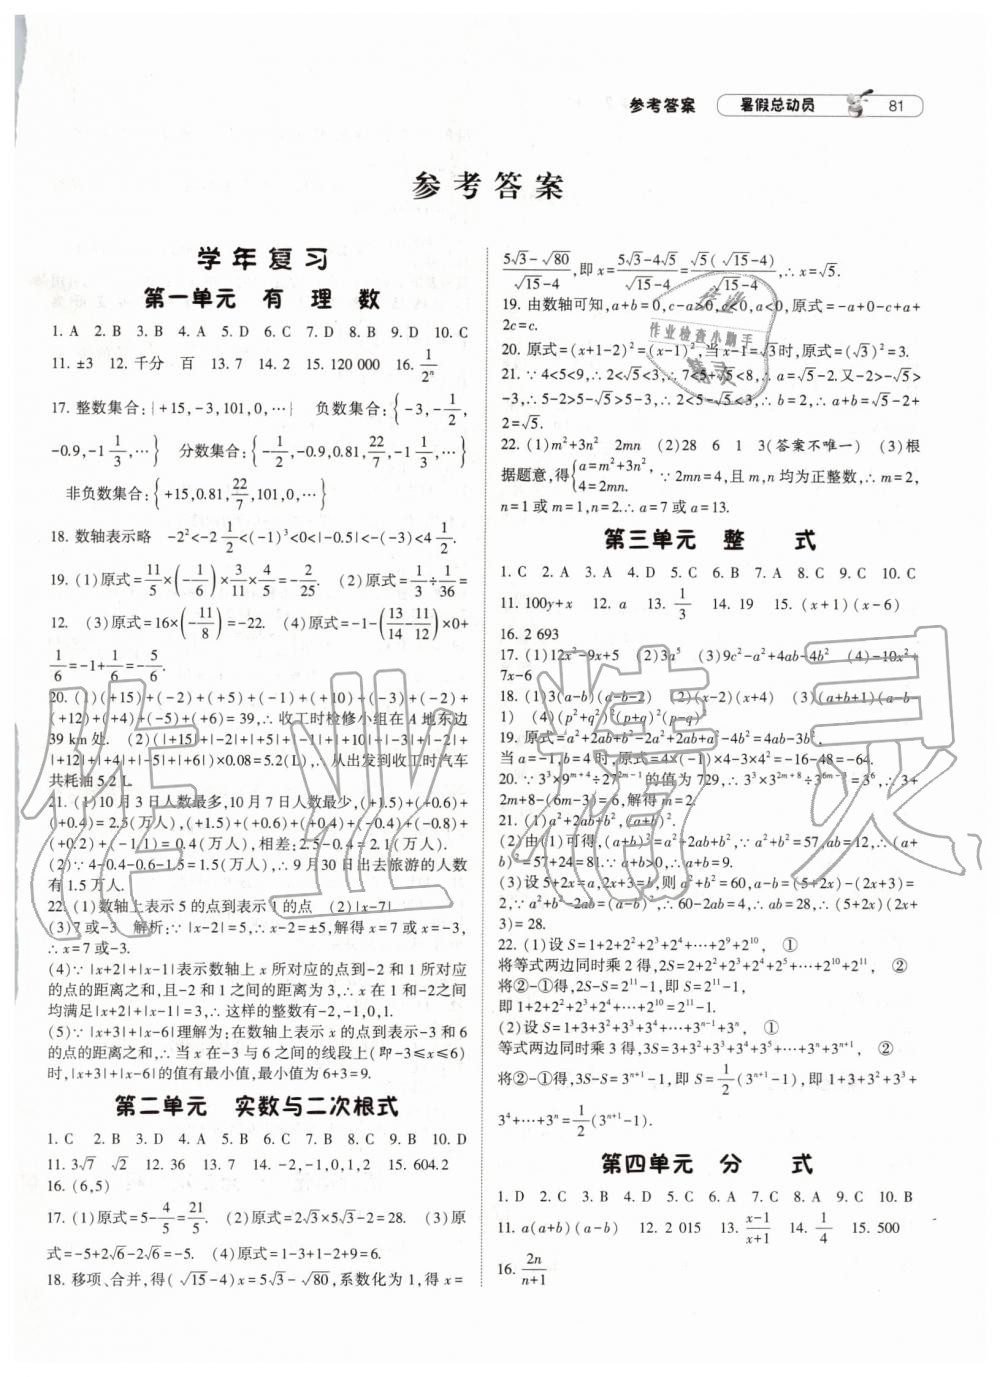 参考答案 暑假总动员 81
参考答案
学年复习
第一单元 有理数
1. A 2. B 3. B 4. A 5. D 6. C 7. D 8. B 9. D 10. C
11. ±3 12. 千分 百 13. 7 14. 2 15. 120 000 16. 1/2ⁿ
17. 整数集合:{+15,-3,101,0,…} 负数集合:{-3,-1/2,
-0.9,-1 1/3,…} 分数集合:{-1/2,-0.9,0.81,22/7,-1 1/3,…}
非负数集合:{+15,0.81,22/7,101,0,…}
18. 数轴表示略 -2²<-2 1/2<(-1)³<0<|-0.5|<-(-3)<4 1/2.
19. (1)原式=11/5×(-1/6)×3/11×4/5=-2/25. (2)原式=1/3÷1/36=
12. (3)原式=16×(-11/8)=-22. (4)原式=-1-(13/14-11/12)×0+
1/6=-1+1/6=-5/6.
20. (1)(+15)+(-2)+(+5)+(-1)+(+10)+(-3)+(-2)+
(+12)+(+4)+(-5)+(+6)=39,∴收工时检修小组在 A 地东边
39 km处. (2)(|+15|+|-2|+|+5|+|-1|+|+10|+|-3|+|-2|+
|+12|+|+4|+|-5|+|+6|)×0.08=5.2(L),∴从出发到收工时汽车
共耗油 5.2 L.
21. (1)10 月 3 日人数最多,10 月 7 日人数最少,(+1.5)+(+0.6)+
(+0.4)=2.5(万人),(+1.5)+(+0.6)+(+0.4)+(-0.4)+(-0.8)+
(+0.2)+(-1.1)=0.4(万人),相差:2.5-0.4=2.1(万人).
(2)∵4-0.4-0.6-1.5=1.5(万人),∴9 月 30 日出去旅游的人数
有 1.5 万人.
22. (1)数轴上表示 5 的点到表示 1 的点 (2)|x-7|
(3)7 或-3 解析:∵|x-2|=5,∴x-2=±5,解得 x=7 或 x=-3,
∴x=7 或-3.
(4)∵|x+2|+|x-1|表示数轴上 x 所对应的点到-2 和 1 所对应
的点的距离之和,且-2 和 1 之间的距离为 3,∴x 在-2 和 1 之间
均满足|x+2|+|x-1|=3,∴这样的整数有-2,-1,0,1.
(5)∵|x+3|+|x-6|理解为:在数轴上表示 x 的点到表示-3 和 6
的点的距离之和,∴当 x 在-3 与 6 之间的线段上(即-3≤x≤6)
时,|x+3|+|x-6|的值有最小值,最小值为 6+3=9.
第二单元 实数与二次根式
1. C 2. B 3. D 4. A 5. B 6. C 7. B 8. C 9. B 10. D
11. 3√7 √2 12. 36 13. 7 14. -2,-1,0,1,2 15. 604.2
16. (6,5)
17. (1)原式=5-4/5=21/5. (2)原式=2√3×5√3-2=28. (3)原
式=-5+2√6-2√6=-5. (4)原式=1-3+1-2+9=6.
18. 移项、合并,得(√15-4)x=5√3-√80,系数化为 1,得 x=
(5√3-√80)/(√15-4),即 x=(5√3-4√5)/(√15-4)=√5(√15-4)/(√15-4),∴x=√5.
19. 由数轴可知,a+b=0,c-a>0,c<0,a<0,原式=-a+0-c+a+
2c=c.
20. 原式=(x+1-2)²=(x-1)²,当 x-1=√3时,原式=(√3)²=3.
21. ∵4<5<9,∴2<√5<3,∴7<5+√5<8,∴a=√5-2.又-2>-√5>
-3,∴5-2>5-√5>5-3,∴2<5-√5<3,∴b=2,∴a+b=√5-2+
2=√5.
22. (1)m²+3n² 2mn (2)28 6 1 3(答案不唯一) (3)根
据题意,得{a=m²+3n², 4=2mn. ∵2mn=4,且 m,n 均为正整数,∴m=2,
n=1 或 m=1,n=2.∴a=7 或 a=13.
第三单元 整式
1. C 2. A 3. A 4. D 5. C 6. B 7. A 8. C 9. C 10. C
11. 100y+x 12. a 13. 1/3 14. 19 15. (x+1)(x-6)
16. 2 693
17. (1)12x²-9x+5 (2)3a⁵ (3)9c²-a²+4ab-4b² (4)-10x²+
7x-6
18. (1)3(a-b)(a-b-2) (2)(x-2)(x+4) (3)(a+b+1)(a-b-
1) (4)(p²+q²)²(p+q)²(p-q)²
19. 原式=a²+2ab+b²-2a²+2ab+a²-4b²=4ab-3b².
当 a=-1,b=4 时,原式=4×(-1)×4-3×4²=-16-48=-64.
20. ∵3³×9ᵐ⁺⁴÷27²ᵐ⁻¹的值为 729,∴3³×3²ᵐ⁺⁸÷3⁶ᵐ⁻³=3⁶,∴3+
2m+8-(6m-3)=6,解得 m=2.
21. (1)a²+2ab+b²,(a+b)².
(2)由(1)可得,(a+b)²=a²+2ab+b²,∵a²+b²=57,ab=12,∴(a+
b)²=57+24=81.∵a+b>0,∴a+b=9.
(3)设 5+2x=a,2x+3=b,则 a²+b²=60,a-b=(5+2x)-(2x+3)=
2,∵a²+b²-2ab=(a-b)²,∴60-2ab=4,∴ab=28,∴(5+2x)(2x+
3)=28.
22. (1)设 S=1+2+2²+2³+2⁴+…+2⁹+2¹⁰, ①
将等式两边同时乘 2 得,2S=2+2²+2³+2⁴+2⁵+…+2¹⁰+2¹¹, ②
将②-①得,2S-S=2¹¹-1,即 S=2¹¹-1,
即 1+2+2²+2³+2⁴+…+2¹⁰=2¹¹-1.
(2)设 S=1+3+3²+3³+3⁴+…+3ⁿ⁻¹+3ⁿ, ①
等式两边同时乘 3 得,3S=3+3²+3³+3⁴+3⁵+…+3ⁿ+3ⁿ⁺¹, ②
将②-①得,3S-S=3ⁿ⁺¹-1,即 S=1/2(3ⁿ⁺¹-1),即 1+3+3²+3³+
3⁴+…+3ⁿ=1/2(3ⁿ⁺¹-1).
第四单元 分式
1. D 2. C 3. B 4. D 5. C 6. A 7. C 8. A 9. C 10. B
11. a(a+b)(a-b) 12. 2 015 13. (x-1)/(x+1) 14. 1/4 15. 500
16. 2n/(n+1)
作业精灵
作业检查小助手